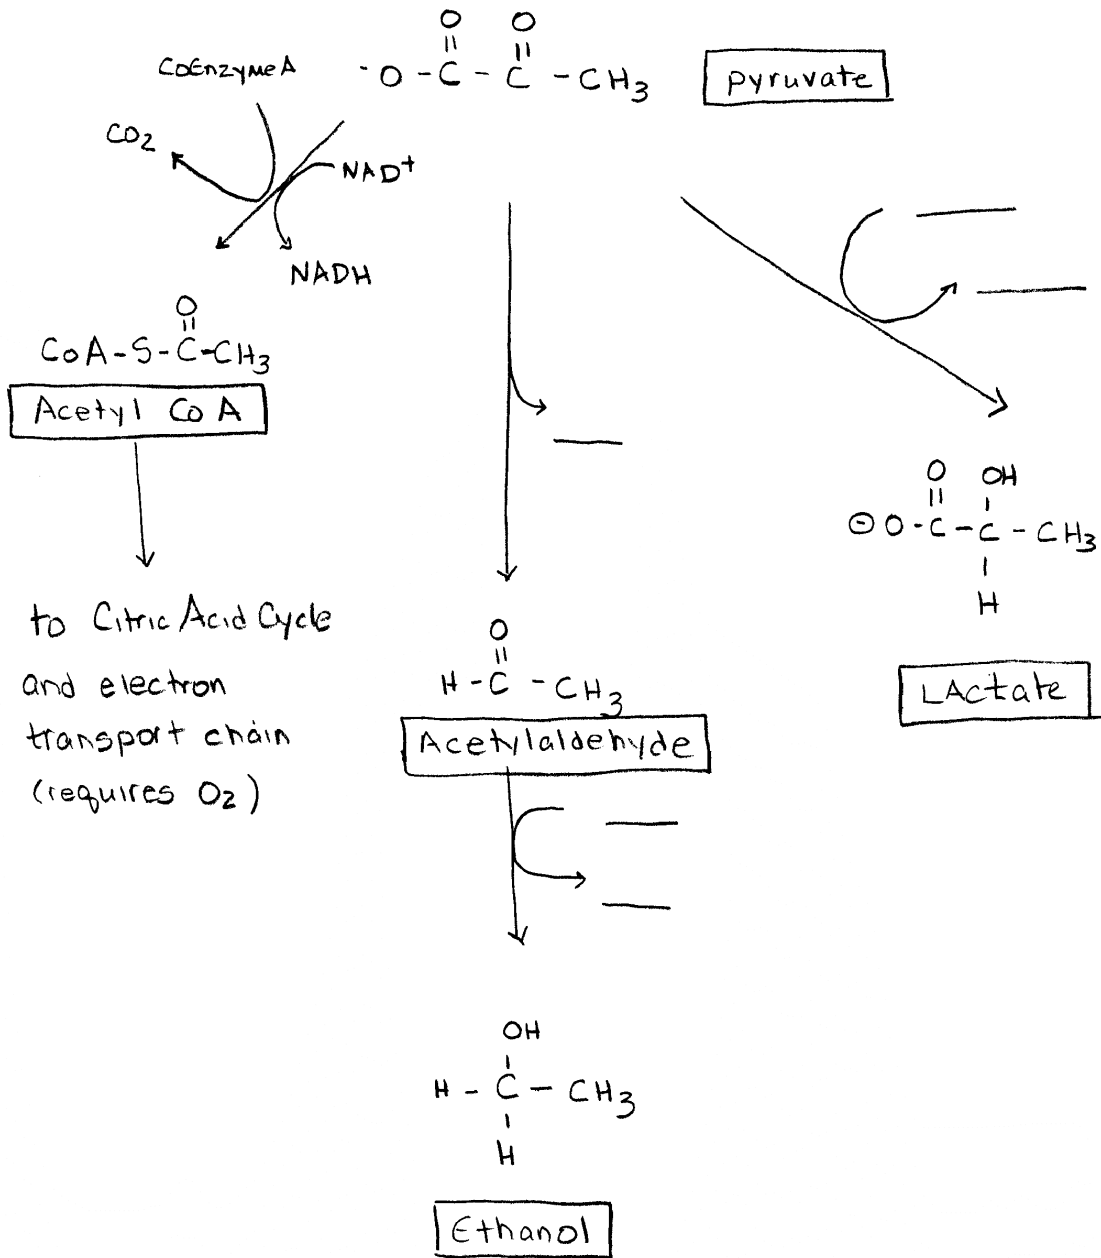 O O
CoEnzymeA -O - C - C - CH3
Pyruvate
CO2
NAD+
NADH
O
CoA-S-C-CH3
Acetyl CoA
to Citric Acid Cycle
and electron
transport chain
(requires O2)
O
H-C-CH3
Acetylaldehyde
OH
H-C-CH3
H
Ethanol
O OH
⊖O-C-C-CH3
H
LActate